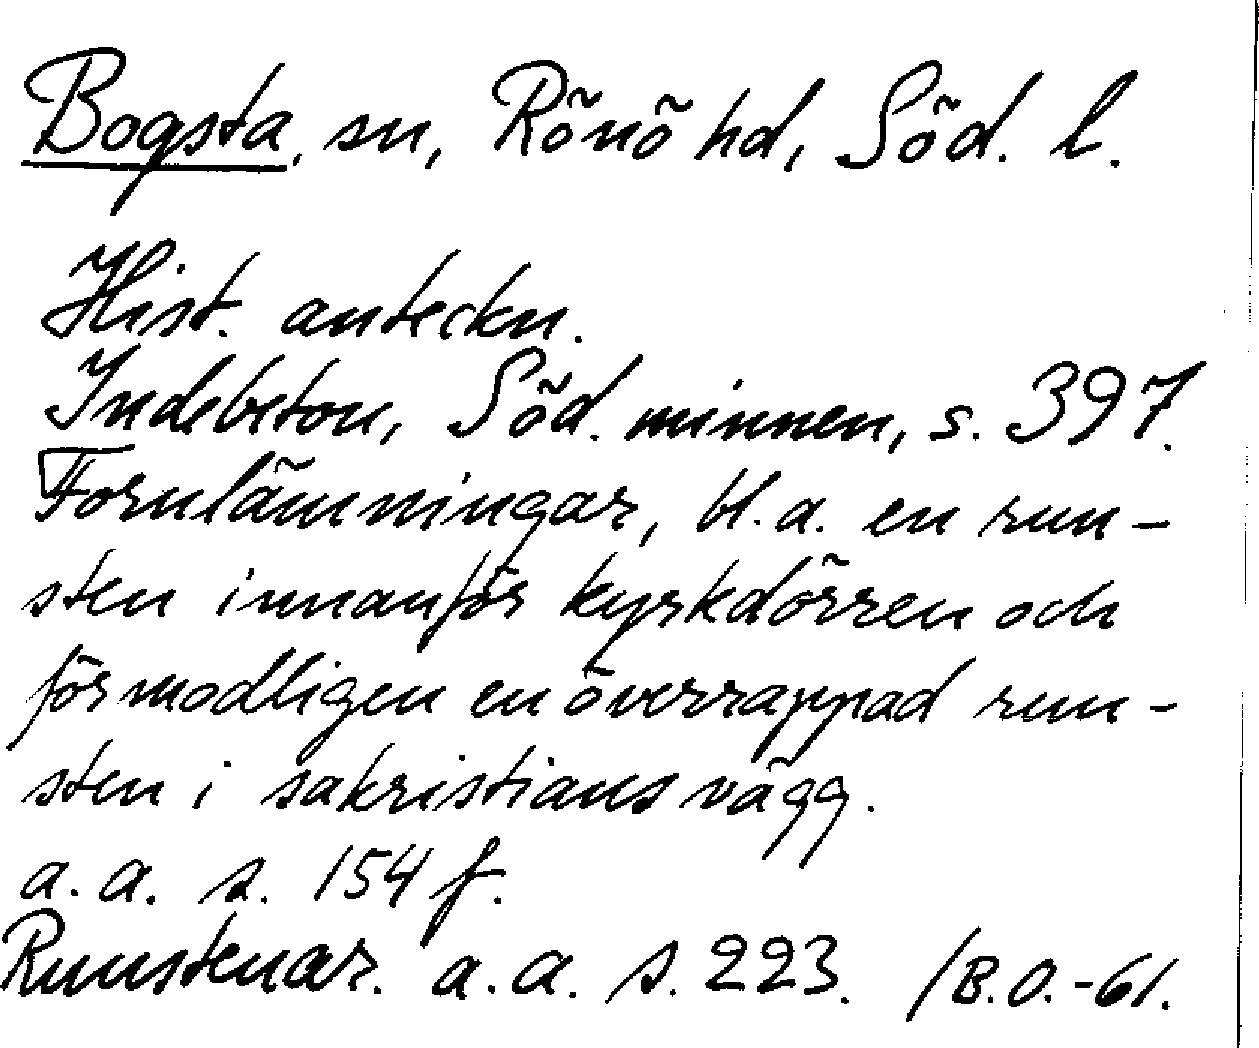 Bogsta, sn, Rönö hd, Söd. l.
Hist. anteckn.
Indebetou, Söd. minnen, s. 397.
Fornlämningar, bl. a. en run-
sten innanför kyrkdörren och
förmodligen en överrappad run-
sten i sakristians vägg.
a. a. s. 154 f.
Runstenar. a. a. s. 223. /B.O.-61.